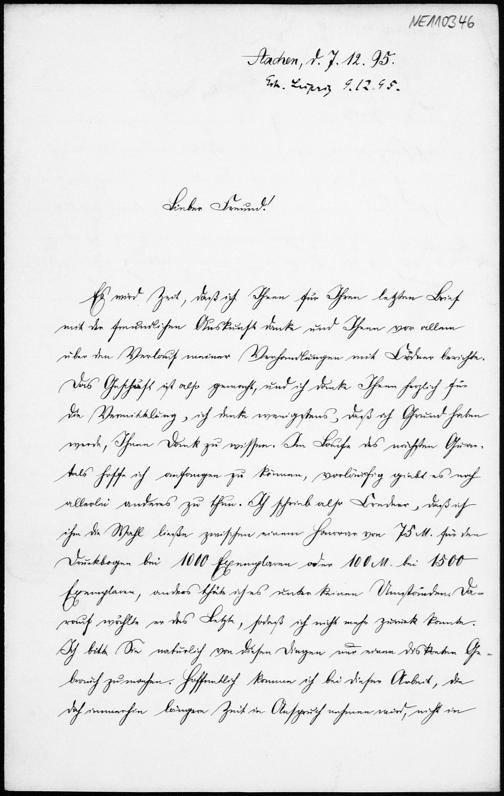 NE110346
Aachen, d. 7. 12. 95.
Erh. Leipzig 9.12.95.
Lieber Freund!
Es wird Zeit, daß ich Ihnen für Ihren letzten Brief
mit der freundlichen Auskunft danke und Ihnen vor allem
über den Verlauf meiner Verhandlungen mit Credner berichte.
Das Geschäft ist also gemacht, und ich danke Ihnen herzlich für
die Vermittlung, ich denke wenigstens, daß ich Grund haben
werde, Ihnen Dank zu wissen. Im Laufe des nächsten Quar-
tals hoffe ich anfangen zu können, vorläufig giebt es noch
allerlei anderes zu thun. Ich schrieb also Credner, daß ich
ihm die Wahl ließe zwischen einem Honorar von 75 M. für den
Druckbogen bei 1010 Exemplaren oder 100 M. bei 1500
Exemplaren, anders thäte ich es unter keinen Umständen. Da-
rauf wählte er das Letzte, sodaß ich nicht mehr zurück konnte.
Ich bitte Sie natürlich von diesen Dingen nur einen diskreten Ge-
brauch zu machen. Hoffentlich komme ich bei dieser Arbeit, die
doch immerhin längere Zeit in Anspruch nehmen wird, nicht in